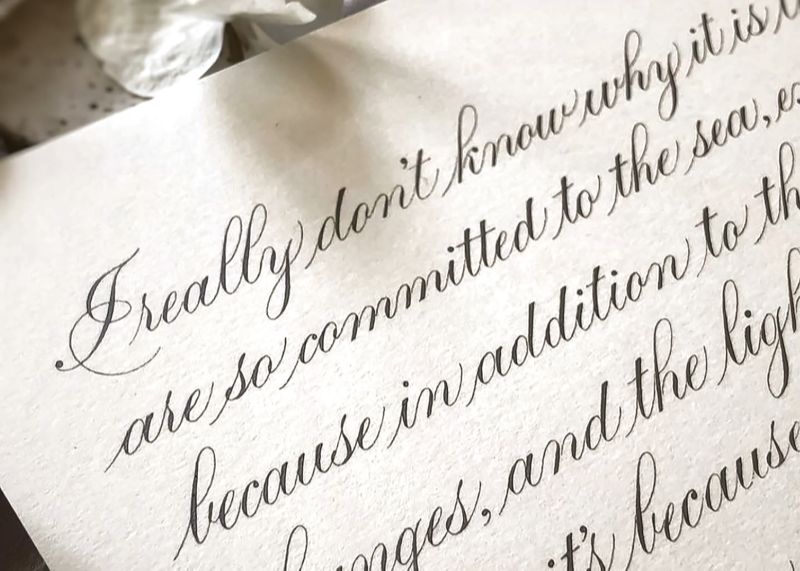 I really don't know why it is
are so committed to the sea,
because in addition to
changes, and the
it's because